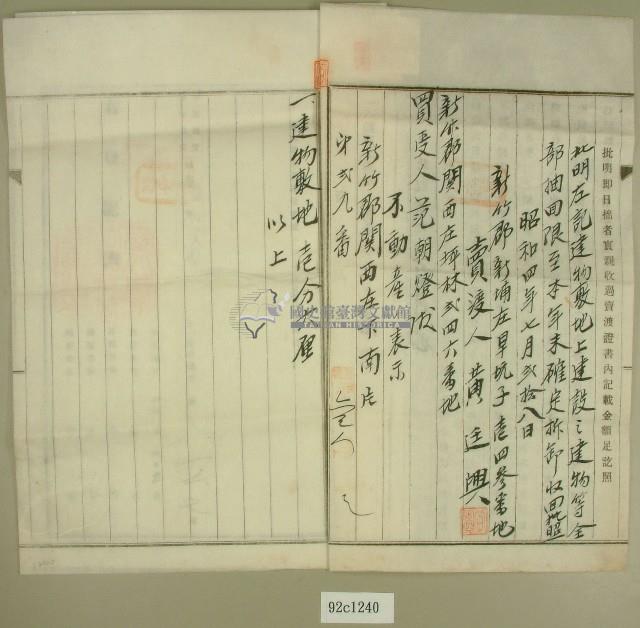 批明即日批者實親收過賣渡證書內記載金額足訖照
批明左記建物敷地上建設之建物等全
部抽回限至本年末確定拆卸收回
昭和四年七月弍拾八日
新竹郡新埔庄旱坑子壱四參番地
賣渡人 黃廷興
新竹郡關西庄坪林弍四六番地
買受人 范朝燈 殿
不動產表示
新竹郡關西庄下南片
弍九番
一、建物敷地 壱分 厘
以上
國史館臺灣文獻館
TAIWAN HISTORICA
92c1240